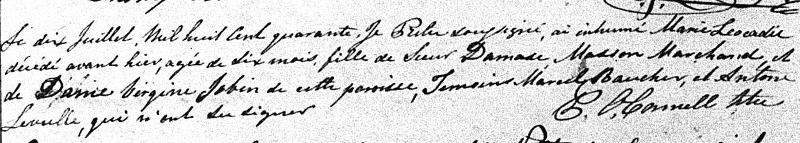 Le dix Juillet, Mil huit Cent quarante, Je Prêtre soussigné, ai inhumé Marie Leocadie
décédé avant hier, agée de dix mois, fille de Sieur Damase Masson Marchand, et
de Dame Virginie Jobin de cette paroisse, Temoins Marcel Boucher, et Antoine
Leveille, qui n'ont su signer